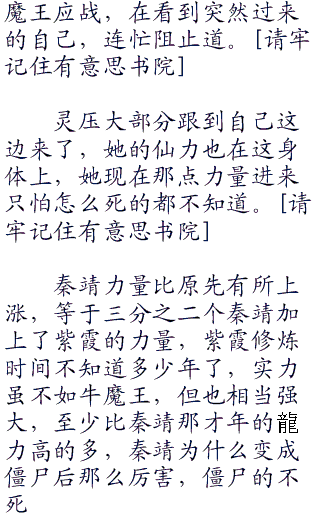 魔王应战，在看到突然过来
的自己，连忙阻止道。[请牢
记住有意思书院]
灵压大部分跟到自己这
边来了，她的仙力也在这身
体上，她现在那点力量进来
只怕怎么死的都不知道。[请
牢记住有意思书院]
秦靖力量比原先有所上
涨，等于三分之二个秦靖加
上了紫霞的力量，紫霞修炼
时间不知道多少年了，实力
虽不如牛魔王，但也相当强
大，至少比秦靖那才年的龍
力高的多，秦靖为什么变成
僵尸后那么厉害，僵尸的不
死